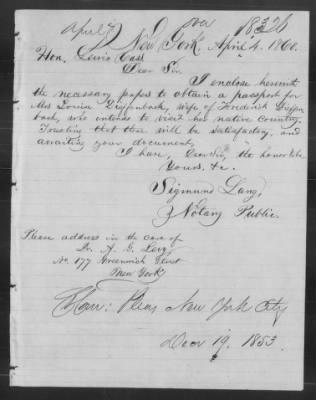 April 7
18326
New York, April 4. 1860.
Hon. Lewis Cass
Dear Sir
I enclose herewith
the necessary papers to obtain a passport for
Mrs Louise Dieffenbach, wife of Frederick Dieffen
bach, who intends to visit her native country.
Trusting that these will be satisfactory, and
awaiting your document,
I have, Dear Sir, the honor to be
Yours, &c.
Sigmund Lang,
Notary Public.
Please address in the care of
Dr. A. G. Levy
No. 177 Greenwich Street
New York
Com: Pleas New York City
19. 1853.